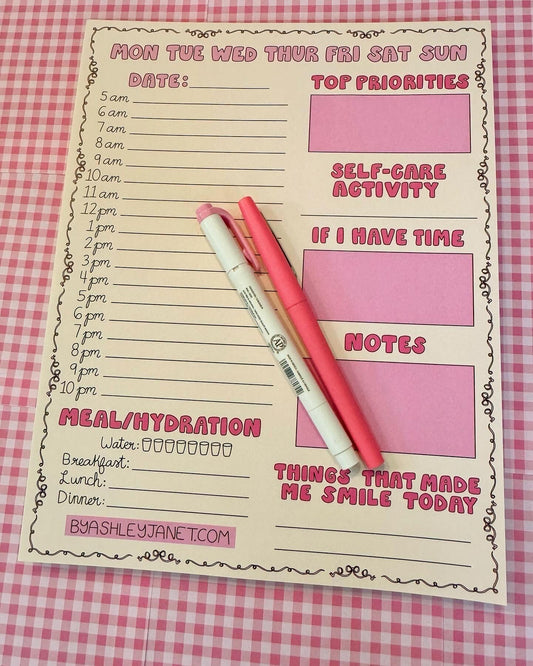 MON TUE WED THUR FRI SAT SUN
DATE:
5 am
6 am
7 am
8 am
9 am
10 am
11 am
12 pm
1 pm
2 pm
3 pm
4 pm
5 pm
6 pm
7 pm
8 pm
9 pm
10 pm
MEAL/HYDRATION
Water:
Breakfast:
Lunch:
Dinner:
BYASHLEYJANET.COM
TOP PRIORITIES
SELF-CARE
ACTIVITY
IF I HAVE TIME
NOTES
THINGS THAT MADE
ME SMILE TODAY
AP